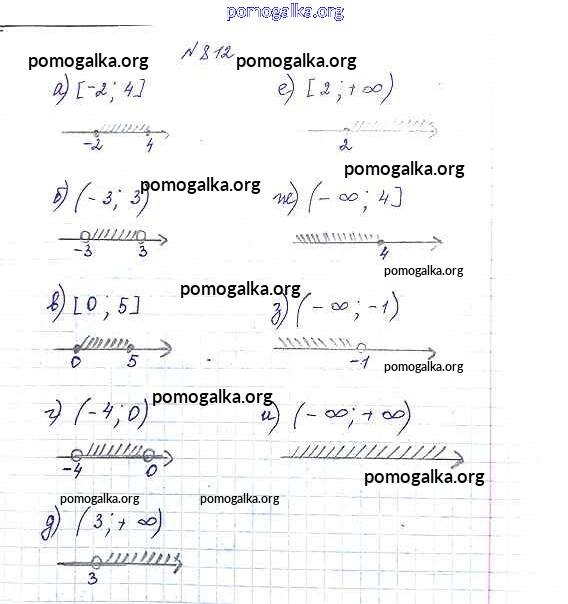 pomogalka.org
№ 812
pomogalka.org pomogalka.org
а) [-2; 4] е) [2; +∞)
-2 4 2
pomogalka.org
pomogalka.org
б) (-3; 3) ж) (-∞; 4]
-3 3 4
pomogalka.org
pomogalka.org
в) [0; 5] з) (-∞; -1)
0 5 -1
pomogalka.org
pomogalka.org
г) (-4; 0) и) (-∞; +∞)
-4 0
pomogalka.org
pomogalka.org pomogalka.org
д) (3; +∞)
3